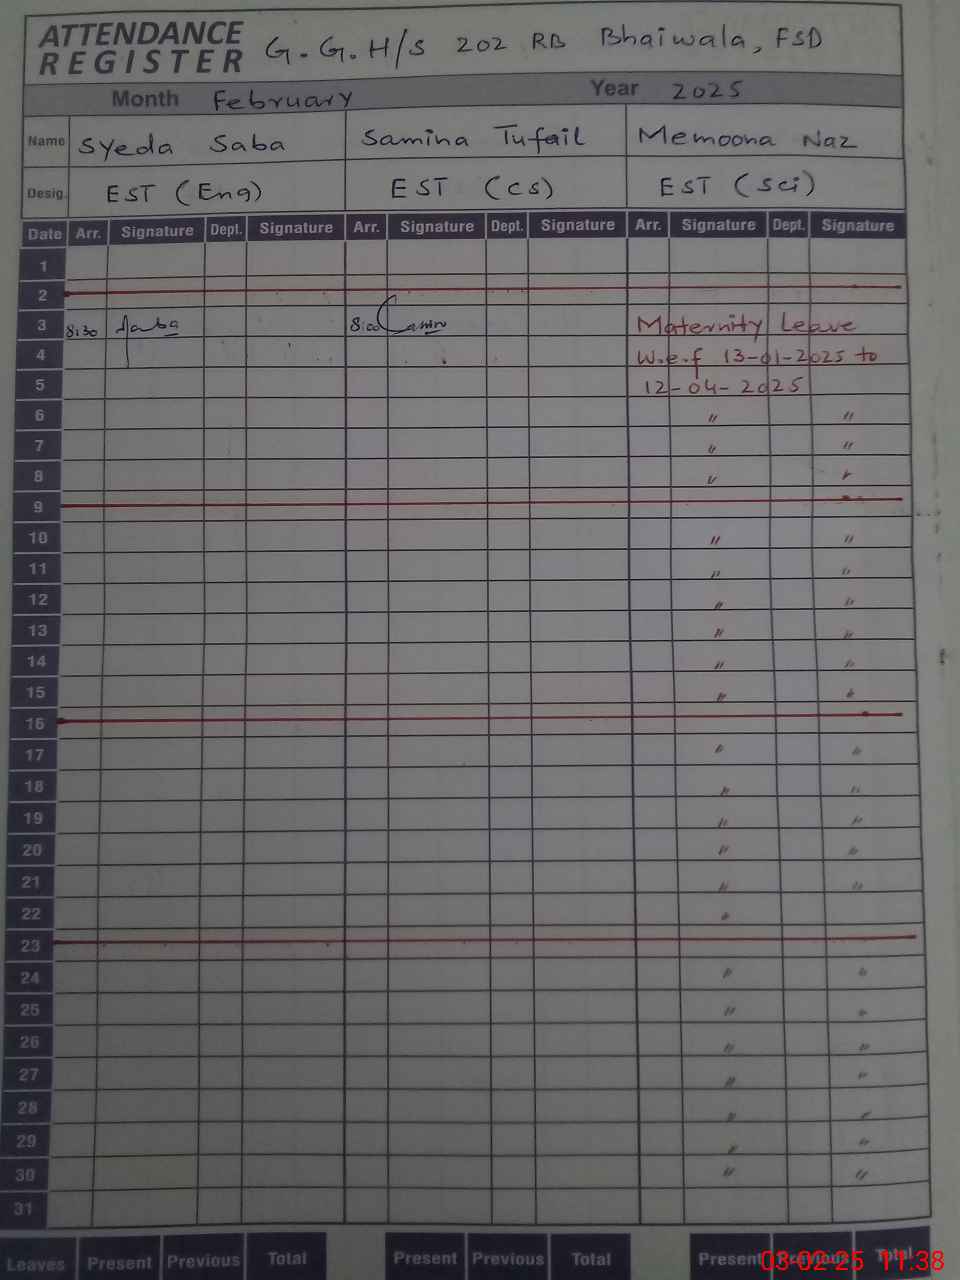 ATTENDANCE REGISTER G.G.H/S 202 RB Bhaiwala, FSD
Month February Year 2025
Name Syeda Saba Samina Tufail Memoona Naz
Desig. EST (Eng) EST (CS) EST (Sci)
Date Arr. Signature Dept. Signature Arr. Signature Dept. Signature Arr. Signature Dept. Signature
1
2
3 8:30 Saba 8:00 Maternity Leave
4 W.e.f 13-01-2025 to
5 12-04-2025
6 " "
7 " "
8 " "
9
10 " "
11 " "
12 " "
13 " "
14 " "
15 " "
16
17 " "
18 " "
19 " "
20 " "
21 " "
22 "
23
24 " "
25 " "
26 " "
27 " "
28 " "
29 " "
30 " "
31
Leaves Present Previous Total Present Previous Total Present Previous Total
03-02-25 11:38